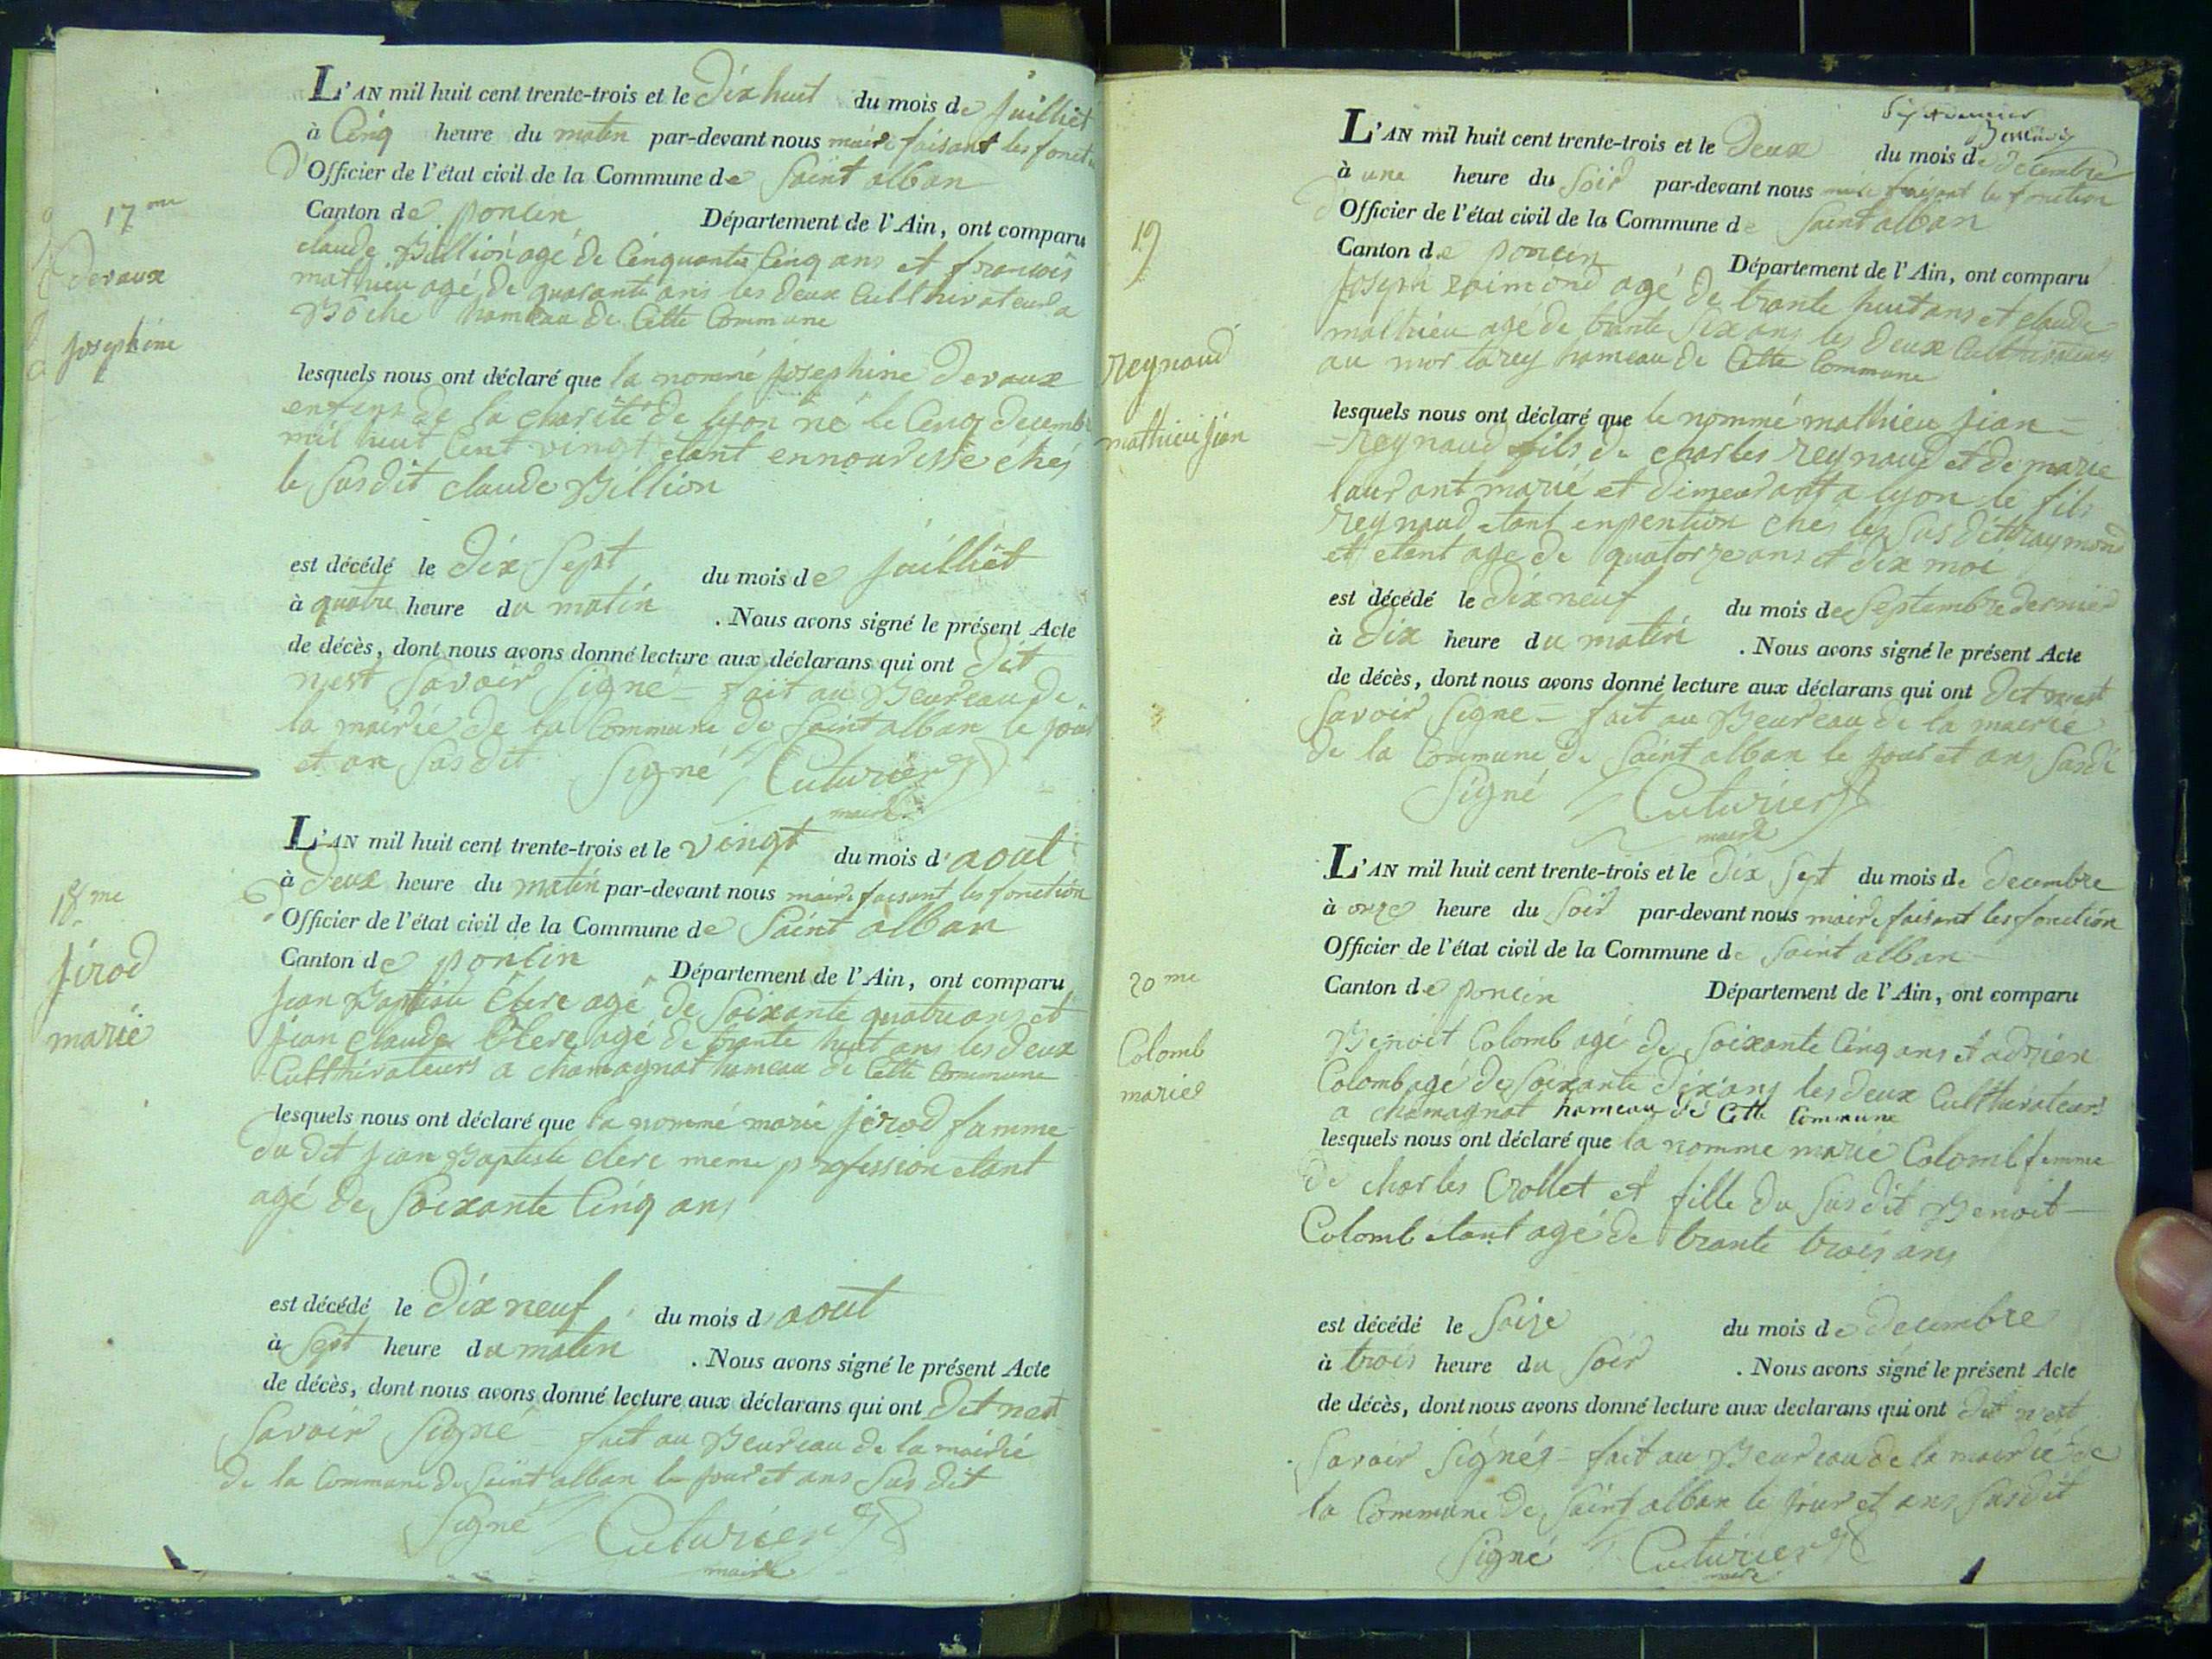 L'AN mil huit cent trente-trois et le dix huit du mois de juilliet
à Cinq heure du matin par-devant nous maire faisant les fonct
d'Officier de l'état civil de la Commune de Saint alban
Canton de poncin Département de l'Ain, ont comparu
17me
claude Billion agé de Cinquante Cinq ans et francois
devaux
mathieu agé de quarante ans les deux Culthivateur a
Bôche hameau de Cette Commune
josephine
lesquels nous ont déclaré que la nommé josephine devaux
enfent de la charité de lyon né le Cinq decemb
mil huit Cent vingt etant ennourisse chés
le Susdit claude Billion
est décédé le dix Sept du mois de juilliet
à quatre heure du matin . Nous avons signé le présent Acte
de décès, dont nous avons donné lecture aux déclarans qui ont dit
nest Savoir Signé - fait au Beureau de
la mairie de la Commune de Saint alban le jour
et an Susdit Signé Cuturier
maire
L'AN mil huit cent trente-trois et le vingt du mois d'aout
à deux heure du matin par-devant nous maire faisant les fonction
18me
d'Officier de l'état civil de la Commune de Saint alban
jirod
Canton de poncin Département de l'Ain, ont comparu
jean Baptiste Clere agé de Soixante quatre ans et
marie
jean claude Clere agé de trante huit ans les deux
Culthivateurs a chamagnat hameau de Cette Commune
lesquels nous ont déclaré que la nommé marie jirod famme
du dit jean Baptiste clere meme profession etant
agé de Soixante Cinq ans
est décédé le dix neuf du mois d'aout
à Sept heure du matin . Nous avons signé le présent Acte
de décès, dont nous avons donné lecture aux déclarans qui ont dit nest
Savoir Signé - fait au Beureau de la mairie
de la Commune de Saint alban le jour et ans Sus dit
Signé Cuturier
maire
L'AN mil huit cent trente-trois et le deux du mois de decembre
à une heure du Soir par-devant nous maire faisant les fonction
d'Officier de l'état civil de la Commune de Saint alban
19
Canton de poncin Département de l'Ain, ont comparu
joseph raimond agé de trante huit ans et claude
mathieu age de trante Six ans les deux Culthivateurs
reynaud
au mortarey hameau de Cette Commune
mathieu jean
lesquels nous ont déclaré que le nommé mathieu jean
reynaud fils de charles reynaud et de marie
laurant marié et dimeurant a lyon le fils
reynaud etant enpention ches les Sus dit raymond
et etant age de quatorze ans et dix moi
est décédé le dix neuf du mois de Septambre dernier
à dix heure du matin . Nous avons signé le présent Acte
de décès, dont nous avons donné lecture aux déclarans qui ont dit nest
Savoir Signe - fait au Beureau de la mairie
de la Commune de Saint alban le jour et ans Susdi
Signé Cuturier
maire
L'AN mil huit cent trente-trois et le dix Sept du mois de decembre
à onze heure du Soir par-devant nous maire faisant les fonction
Officier de l'état civil de la Commune de Saint alban
20me
Canton de poncin Département de l'Ain, ont comparu
Colomb
Benoit Colomb agé de Soixante Cinq ans et adrien
marie
Colomb agé de Soixante dix ans les deux Culthivateurs
a chamagnat hameau de Cette Commune
lesquels nous ont déclaré que la nomme marie Colomb femme
de charles Crollet et fille du Sus dit Benoit
Colomb etant agé de trante trois ans
est décédé le Saize du mois de decembre
à trois heure du Soir . Nous avons signé le présent Acte
de décès, dont nous avons donné lecture aux declarans qui ont dit nest
Savoir Signés - fait au Beureau de la mairie de
la Commune de Saint alban le jour et ans Susdit
Signé Cuturier
maire